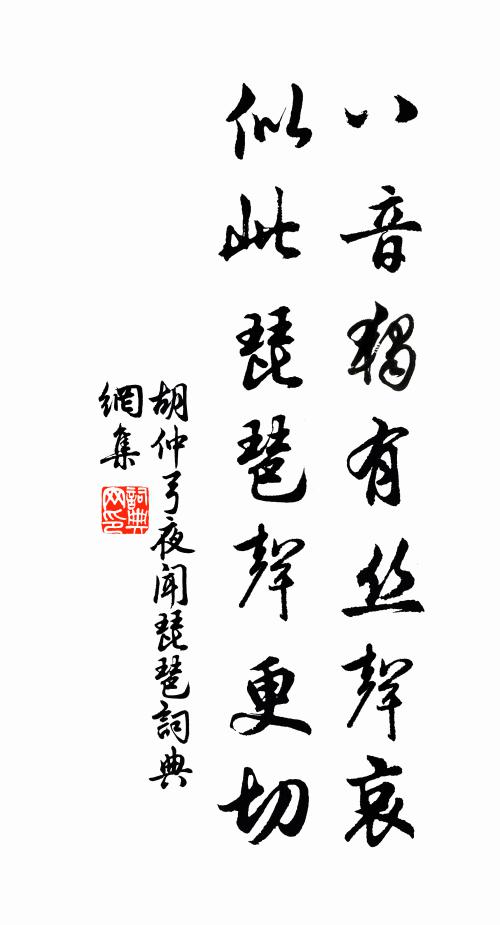 八音獨有丝聲哀
似此琵琶聲更切
胡仲弓夜聞琵琶詞典
網集
詞典
网印